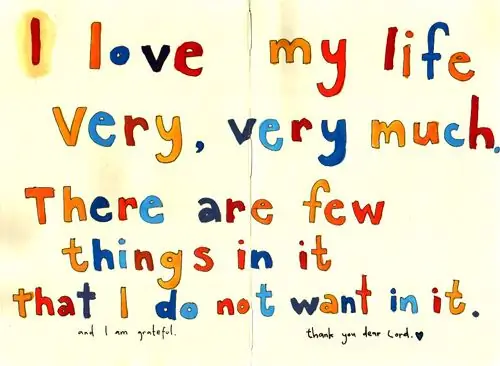 I love my life
very, very much.
There are few
things in it
that I do not want in it.
and I am grateful. thank you dear Lord.♥